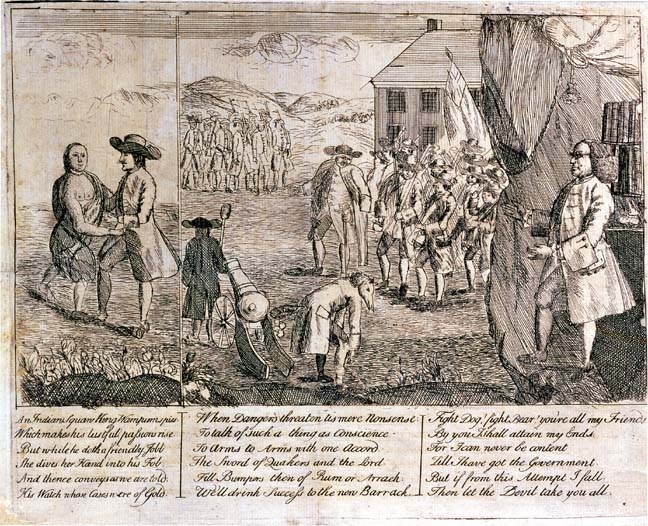 An Indian Squaw King Wampum spies
Which makes his lustful passions rise
But while he doth a friendly Jobb
She dives her Hand into his Fob
And thence conveys as we are told
His Watch whose Cases were of Gold.
When Dangers threaten tis mere Nonsense
To talk of Such a thing as Conscience
To Arms to Arms with one Accord
The Sword of Quakers and the Lord
Fill Bumpers then of Rum or Arrack
We'll drink Success to the new Barrack
Fight Dog, fight Bear, you're all my Friends
By you I shall attain my Ends
For I can never be content
Till I have got the Government
But if from this Attempt I fall
Then let the Devil take you all.